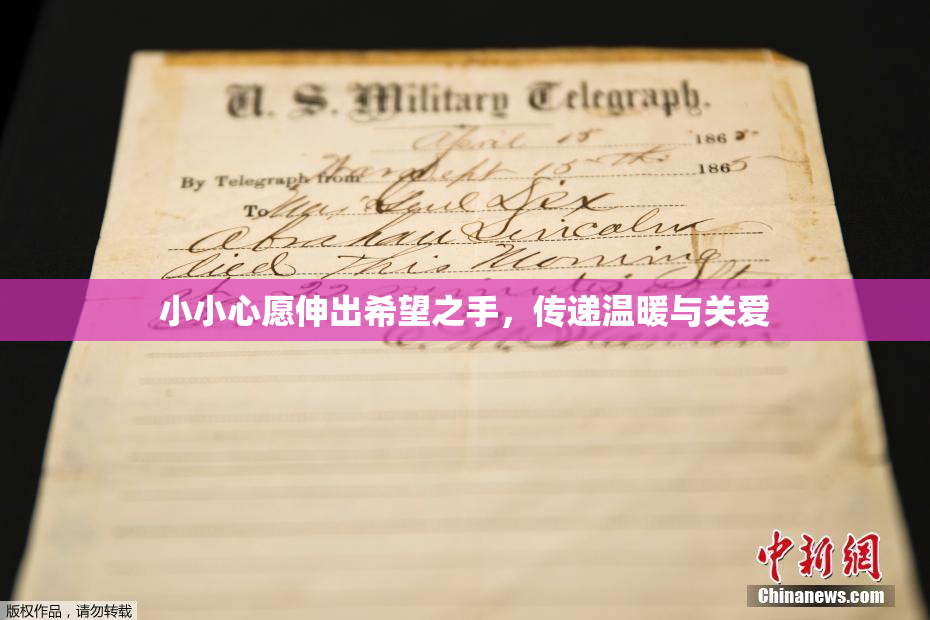 U. S. Military Telegraph.
April 15 1865
By Telegraph from War Dept 15th 1865
To Maj Genl Dix
Abraham Lincoln
died This Morning
22 minutes after
小小心愿伸出希望之手，传递温暖与关爱
E. M. Stanton
中新网
Chinanews.com
版权作品，请勿转载